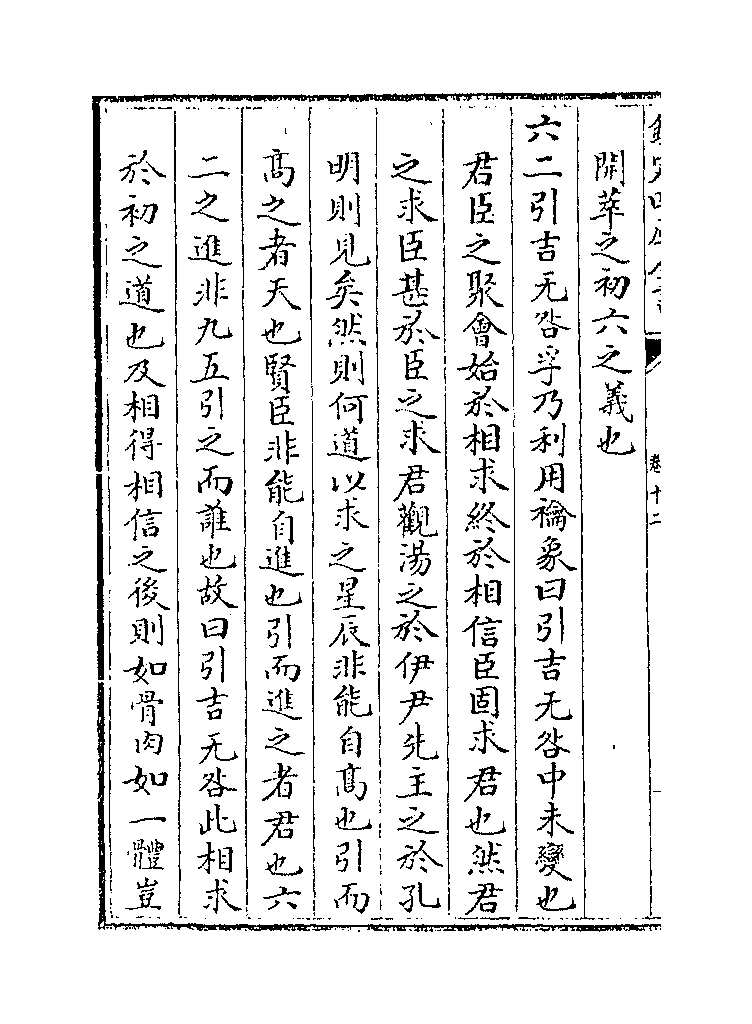 卷十二
開萃之初六之義也
六二引吉无咎孚乃利用禴象曰引吉无咎中未變也
君臣之聚會始於相求終於相信臣固求君也然君
之求臣甚於臣之求君觀湯之於伊尹先主之於孔
明則見矣然則何道以求之星辰非能自髙也引而
髙之者天也賢臣非能自進也引而進之者君也六
二之進非九五引之而誰也故曰引吉无咎此相求
於初之道也及相得相信之後則如骨肉如一體豈